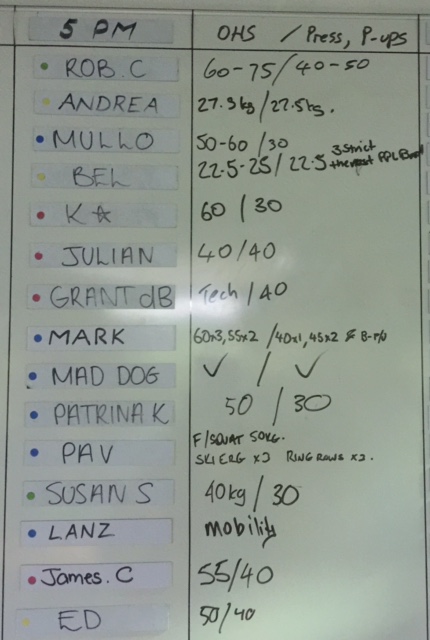 5 PM OHS / Press, P-ups
ROB. C 60-75/40-50
ANDREA 27.5kg/27.5kg.
MULLO 50-60/30
BEL 22.5-25/22.5 3 strict
the rest
K☆ 60/30
JULIAN 40/40
GRANT dB Tech/40
MARK 60x3, 55x2 /40x1, 45x2
MAD DOG ✓ / ✓
PATRINA K 50/30
PAV F/SQUAT 50KG.
SKI ERG x3 RING ROWS x3.
SUSAN S 40kg/30
LANZ mobility
James. C 55/40
ED 50/40